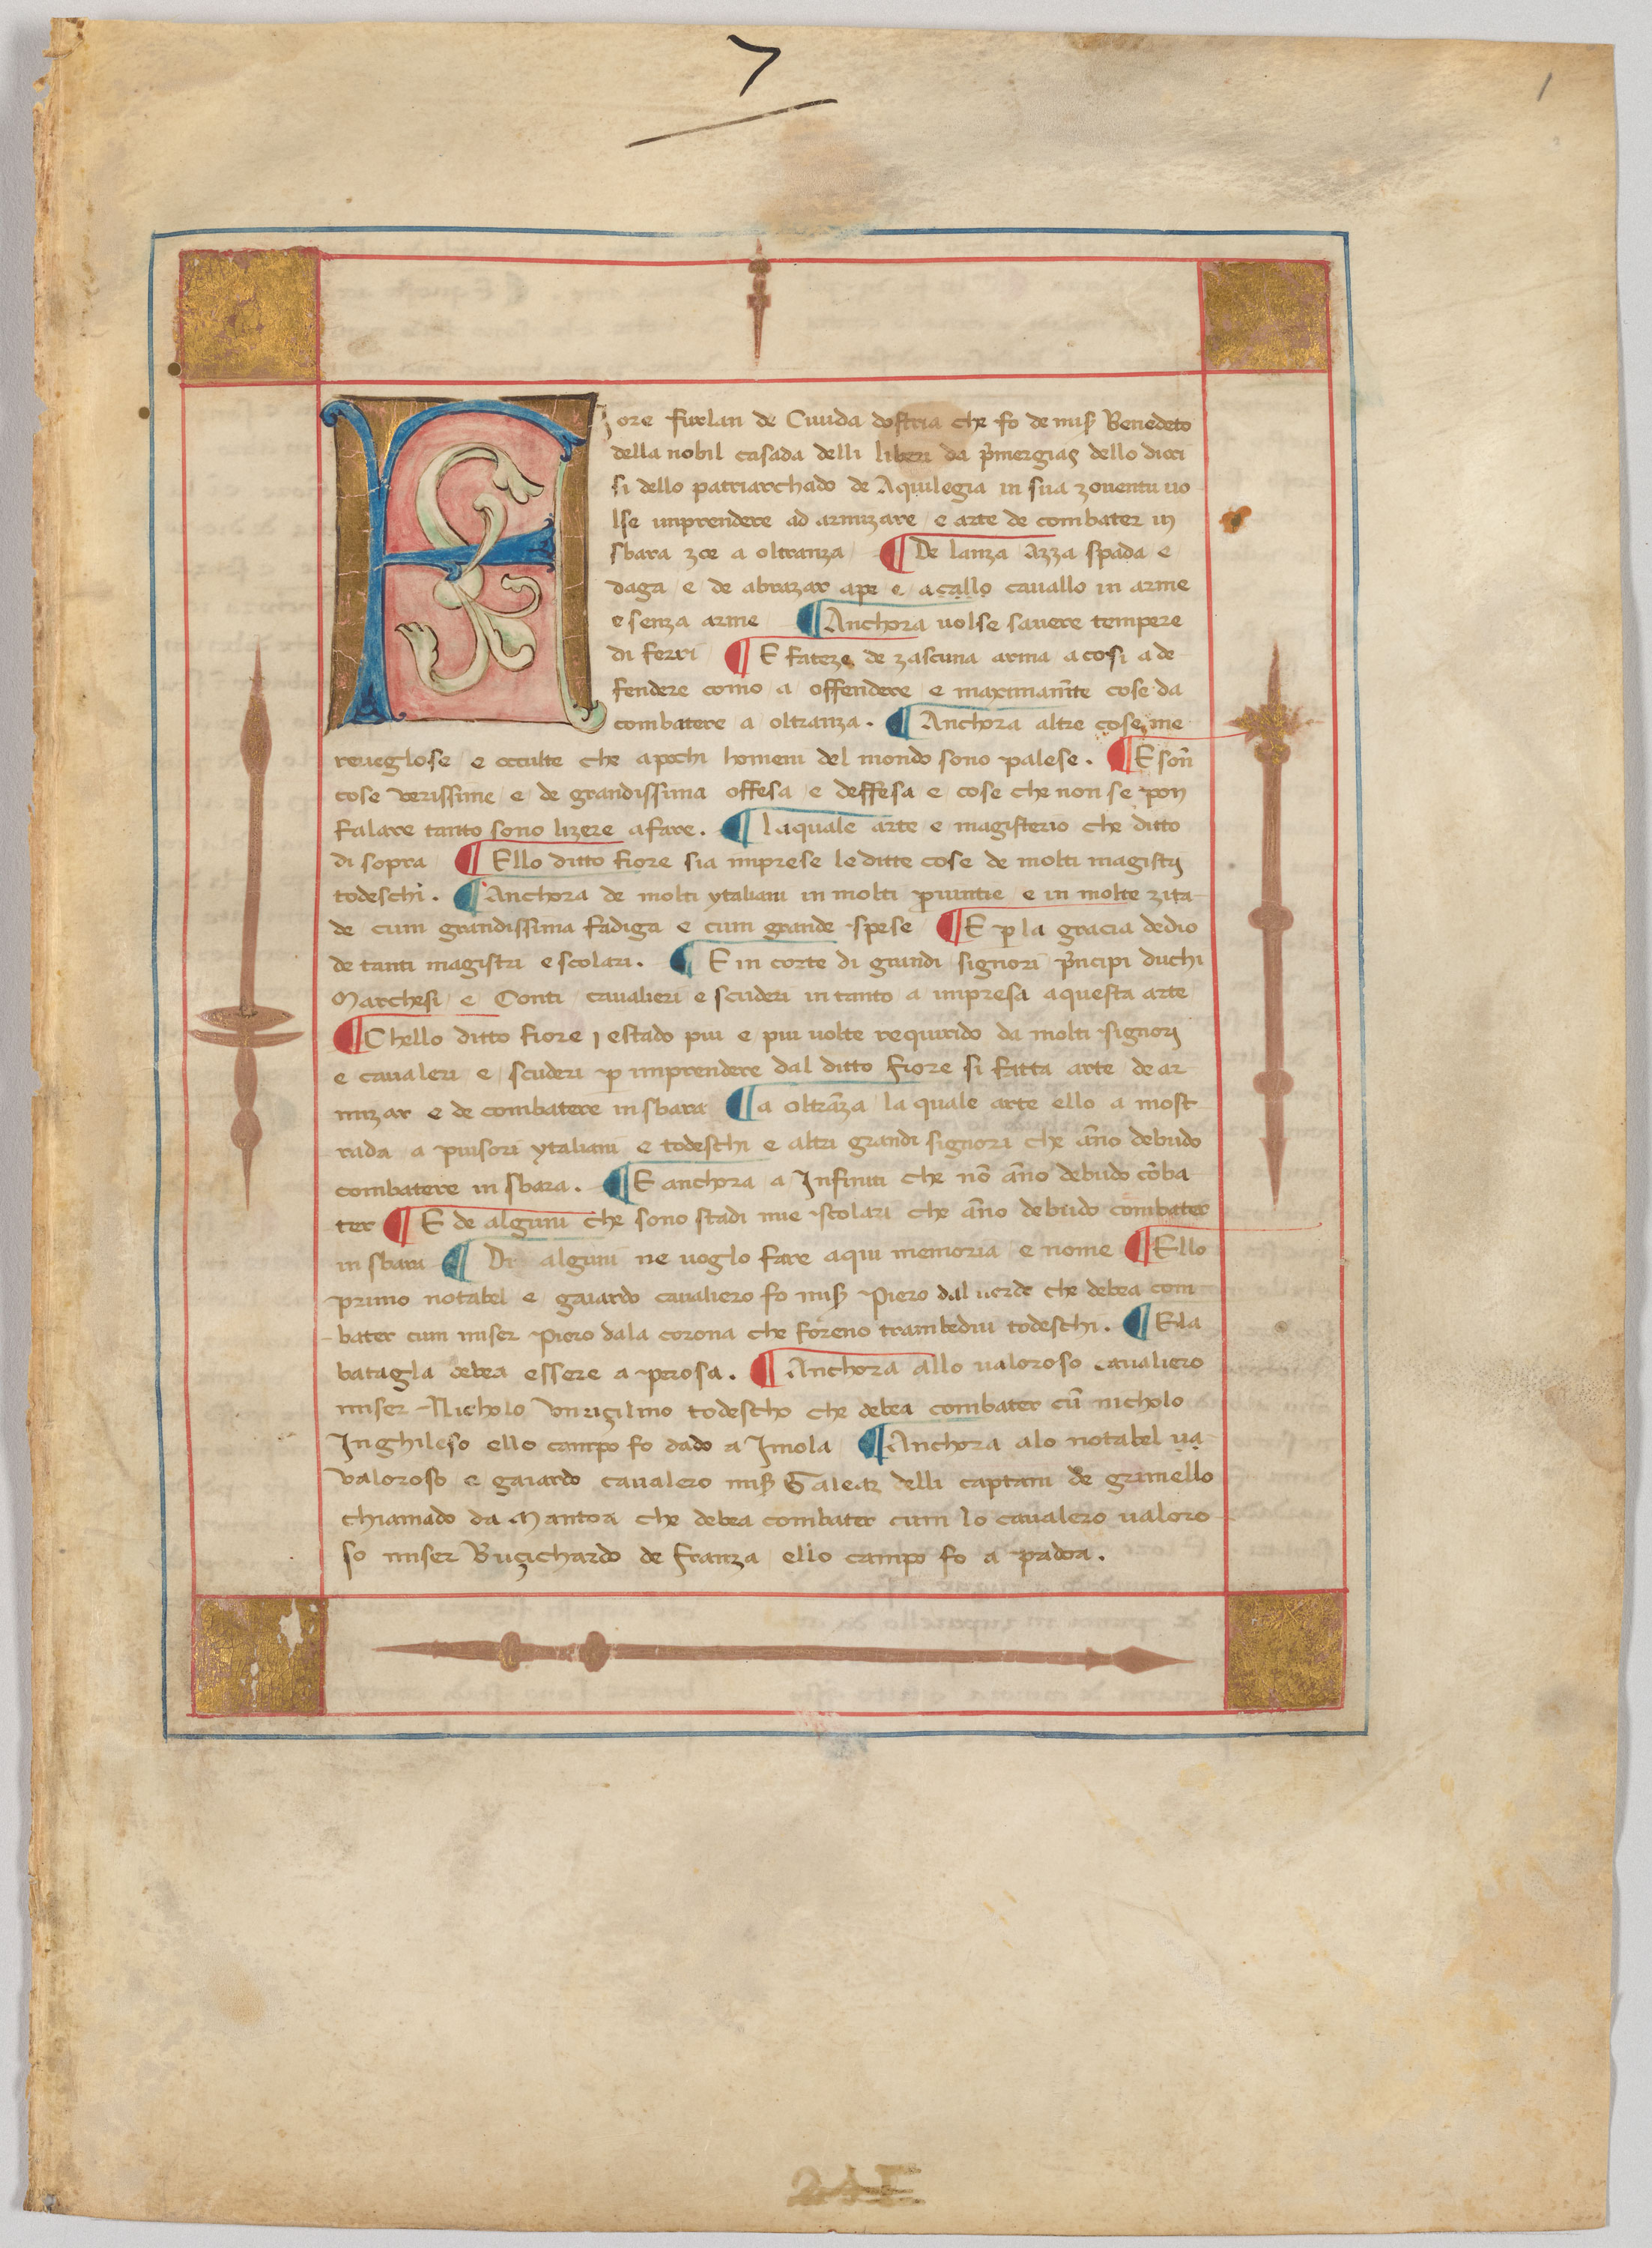 7
1
Fiore furlan de Ciuida dostria che fo de mis̃ Benedeto
della nobil casada delli liberi da p̃mergias dello dioci
si dello patriarchado de Aquilegia in sua zouentu uo
lse imprendere ad armizare e arte de combater in
sbara zoe a oltranza ¶ De lanza Azza spada e
daga e de abrazar ape e acallo cauallo in arme
e senza arme ¶ Anchora uolse sauere tempere
di ferri ¶ E fateze de zascuna arma acosi a de
fendere como a offendere e maximam̃te cose da
combatere a oltranza. ¶ Anchora altre cose me
reueglose e occulte che apochi homeni del mondo sono palese. ¶ E son̄
cose verissime e de grandissima offesa e deffesa e cose che non se pon
falare tanto sono lizere afare. ¶ laquale arte e magisterio che ditto
di sopra ¶ Ello ditto fiore sia imprese le ditte cose de molti magistri
todeschi. ¶ Anchora de molti ytaliani in molti p̱uintie e in molte zita
de cum grandissima fadiga e cum grande spese ¶ E ꝑ la gracia dedio
de tanti magistri e scolari. ¶ E in corte di grandi signori p̃ncipi duchi
Marchesi e Conti caualieri e scuderi in tanto a impresa aquesta arte
¶ Chello ditto fiore j estado piu e piu uolte requirido da molti signori
e caualeri e scuderi ꝑ imprendere dal ditto fiore si fatta arte de ar
mizar e de combatere in sbara ¶ a oltrãza la quale arte ello a most
rada a piusori ytaliani e todeschi e altri grandi signori che ãno debudo
combatere in sbara. ¶ E anchora a Infiniti che nõ ãno debudo cõba
ter ¶ E de alguni che sono stadi mie scolari che ãno debudo combater
in sbara ¶ Di alguni ne uoglo fare aqui memoria e nome ¶ Ello
primo notabel e gaiardo caualiero fo mis̃ Piero dal uerde che debea com
bater cum miser Piero dala corona che foreno trambediu todeschi. ¶ E la
batagla debea essere a perosa. ¶ Anchora allo ualoroso caualiero
miser Nicholo Vnriçilino todescho che debea combater cũ nicholo
Inghileso ello campo fo dado a Imola ¶ Anchora alo notabel ua
valoroso e gaiardo caualero mis̃ Galeaz delli captani de grimello
chiamado da Mantoa che debea combater cum lo caualero ualoro
so miser Buçichardo de Franza ello campo fo a padoa.